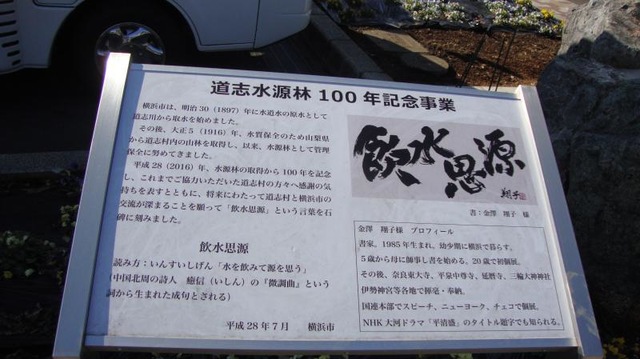 道志水源林100年記念事業
横浜市は、明治30（1897）年に水道水の原水として
道志川から取水を始めました。
その後、大正5（1916）年、水質保全のため山梨県
から道志村内の山林を取得し、以来、水源林として管理
保全に努めてきました。
平成28（2016）年、水源林の取得から100年を記念
し、これまでご協力いただいた道志村の方々へ感謝の気
持ちを表すとともに、将来にわたって道志村と横浜市の
交流が深まることを願って「飲水思源」という言葉を石
碑に刻みました。
飲水思源
読み方：いんすいしげん「水を飲みて源を思う」
（中国北周の詩人 庾信（いしん）の『徴調曲』という
詞から生まれた成句とされる）
平成28年7月 横浜市
飲水思源
翔子
書：金澤 翔子 様
金澤 翔子様 プロフィール
書家。1985年生まれ。幼少期に横浜で暮らす。
5歳から母に師事し書を始める。20歳で初個展。
その後、奈良東大寺、平泉中尊寺、延暦寺、三輪大神神社
伊勢神宮等各地で揮毫・奉納。
国連本部でスピーチ、ニューヨーク、チェコで個展。
NHK大河ドラマ「平清盛」のタイトル題字でも知られる。